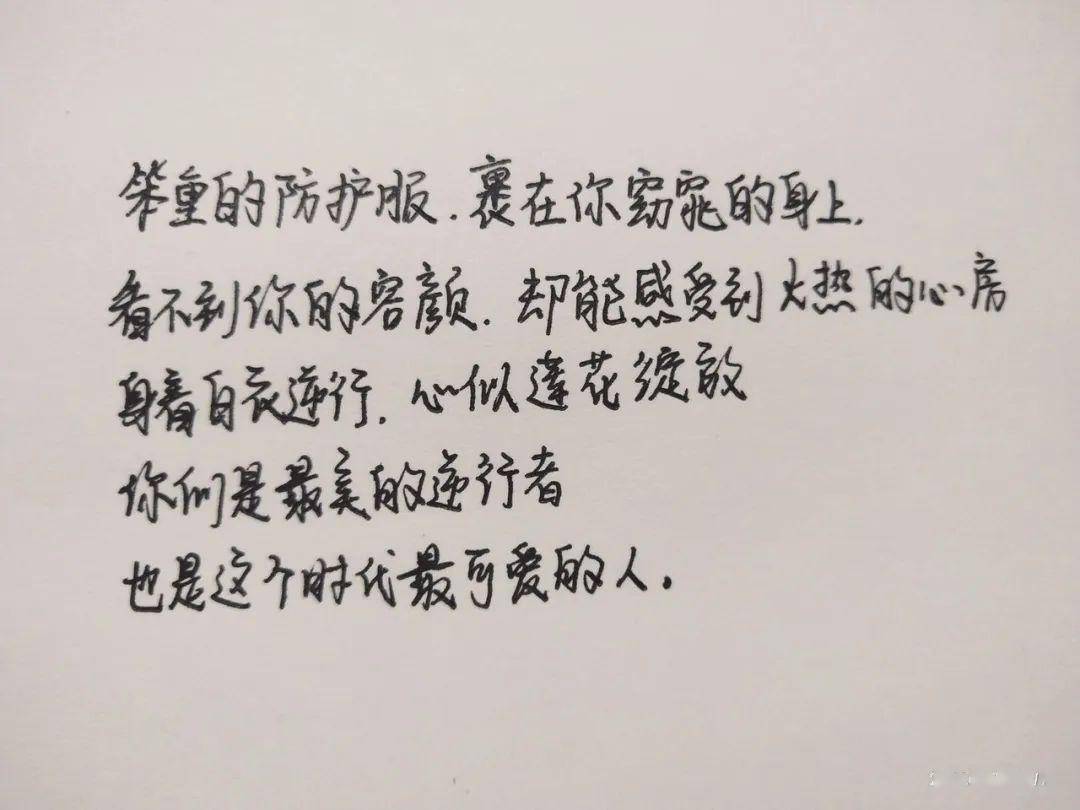 笨重的防护服.裹在你窈窕的身上.
看不到你的容颜.却能感受到火热的心房
身着白衣逆行.心似莲花绽放
你们是最美的逆行者
也是这个时代最可爱的人。